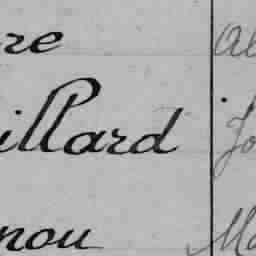 re Al
illard Jo
nou Ma